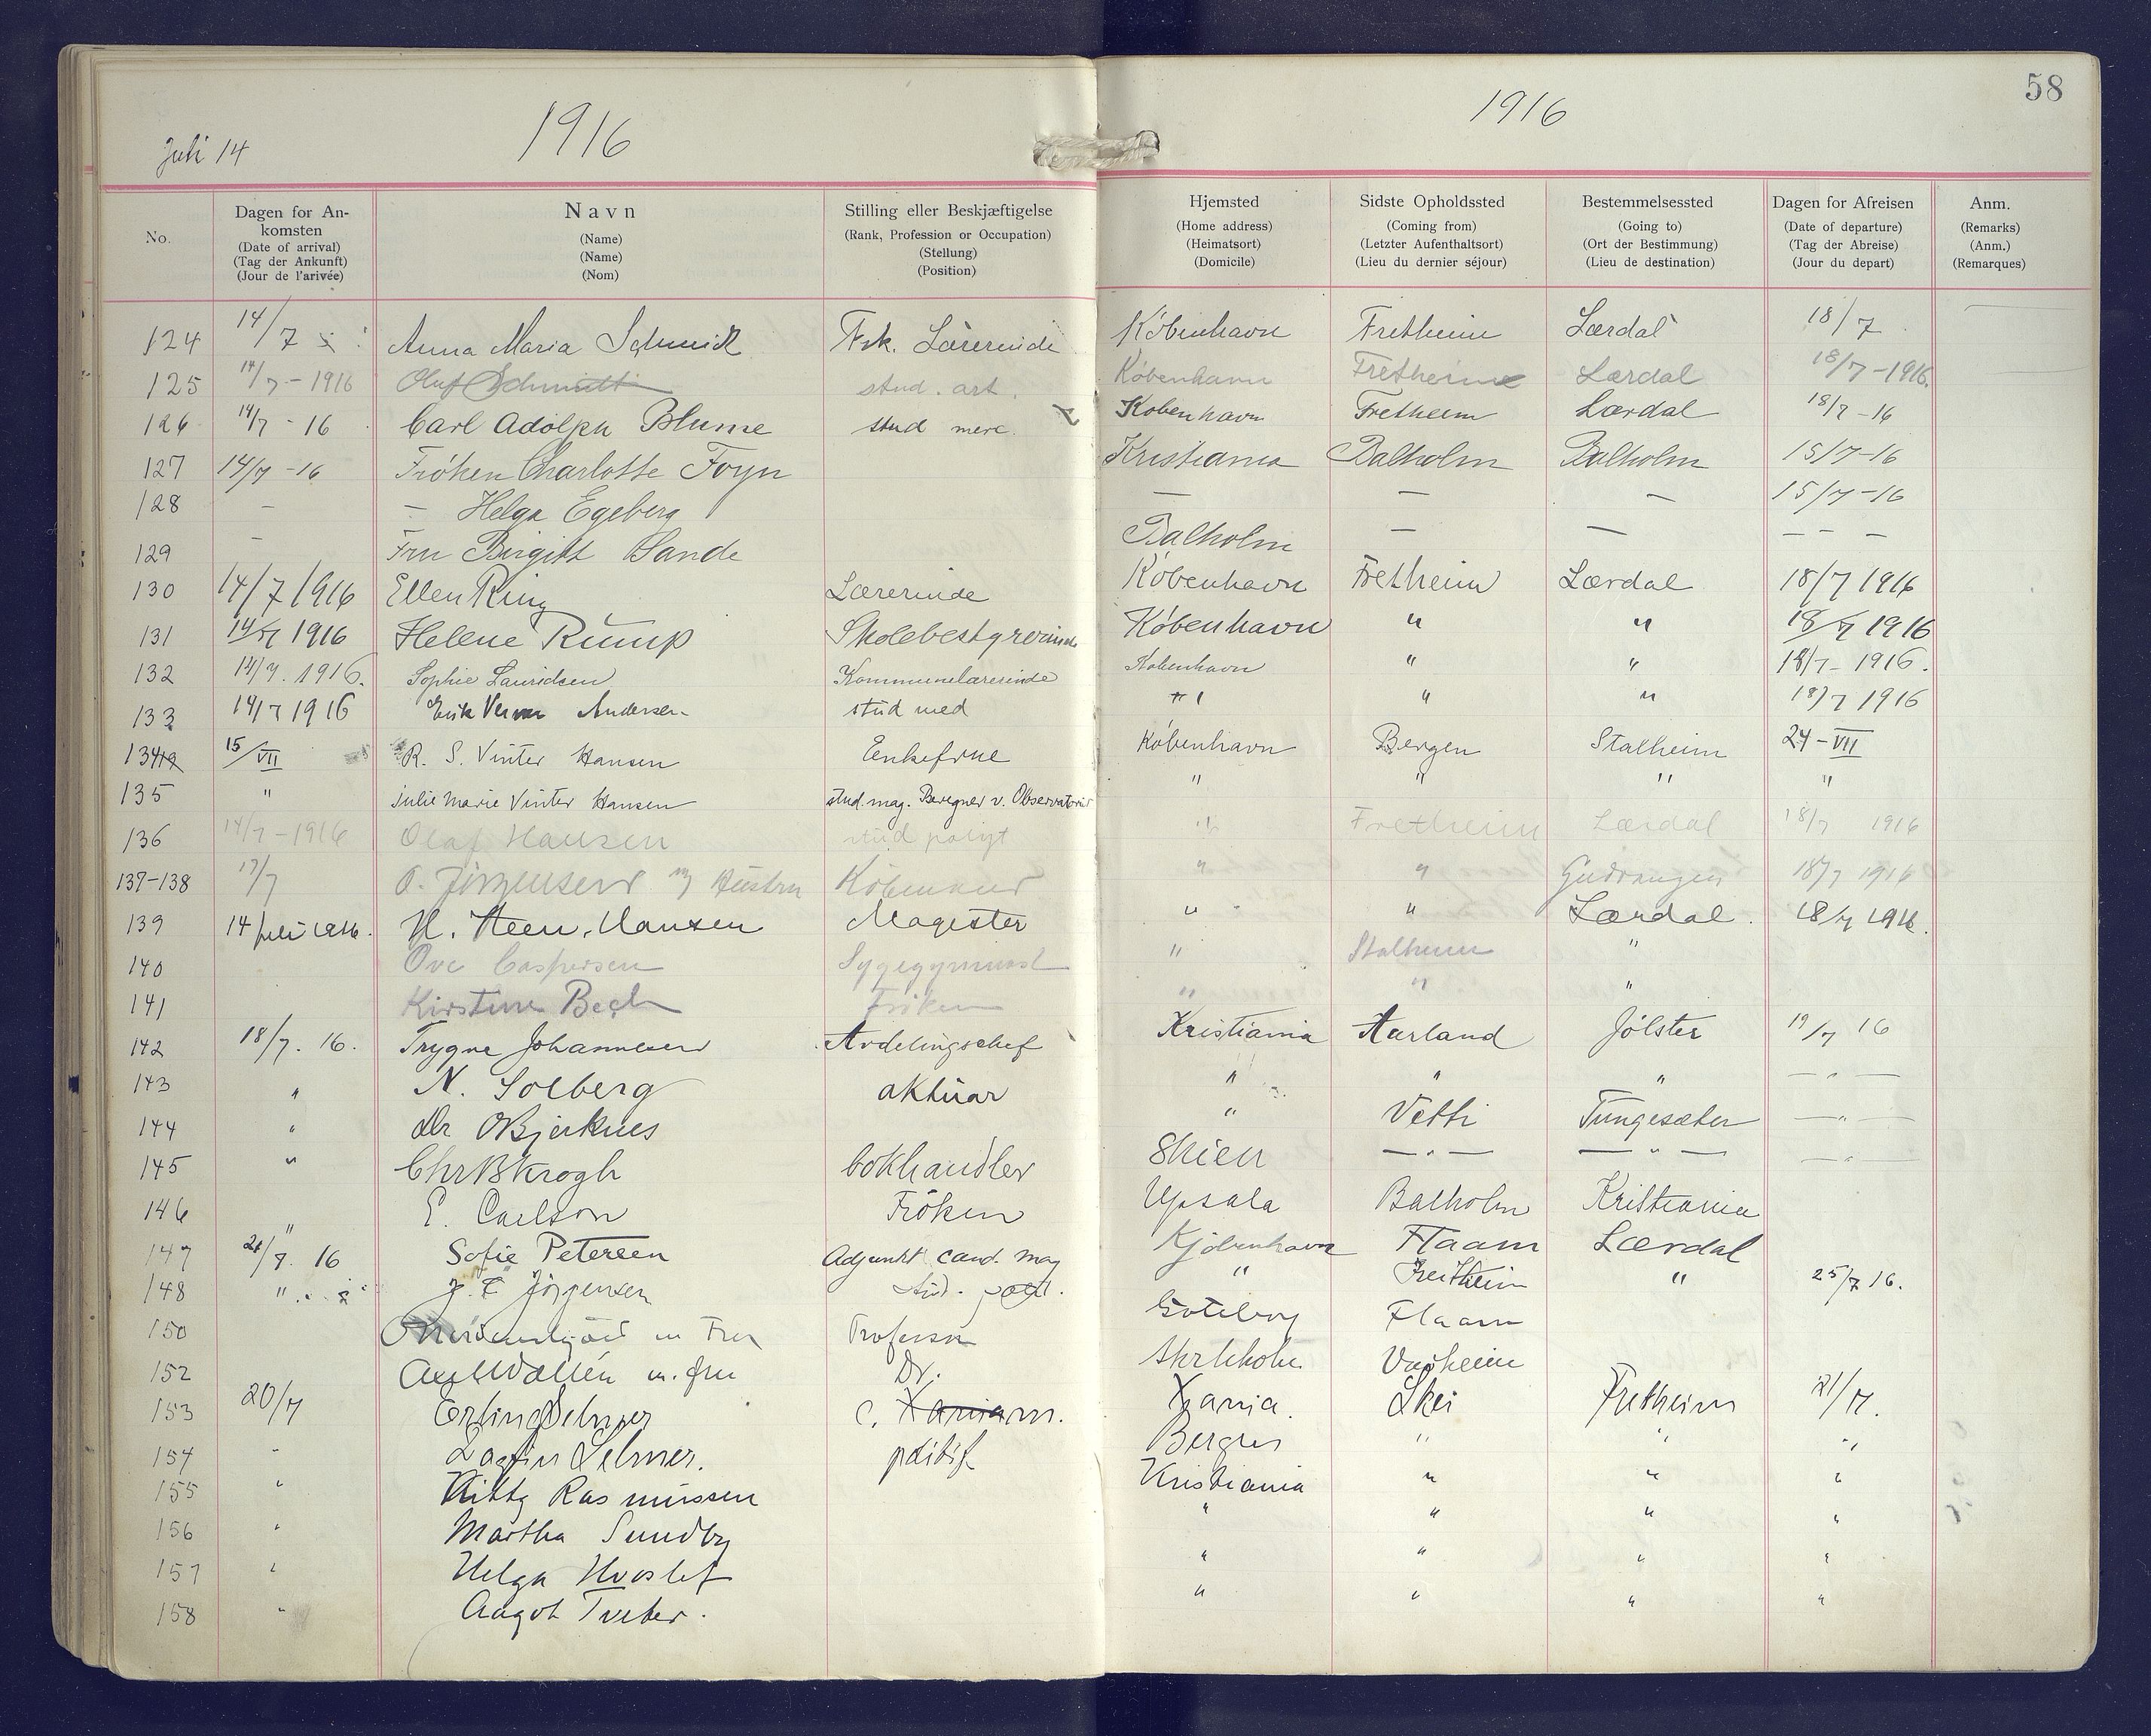 58
1916 1916
Juli 14
No.
Dagen for An-
komsten
(Date of arrival)
(Tag der Ankunft)
(Jour de l'arivée)
Navn
(Name)
(Name)
(Nom)
Stilling eller Beskjæftigelse
(Rank, Profession or Occupation)
(Stellung)
(Position)
Hjemsted
(Home address)
(Heimatsort)
(Domicile)
Sidste Opholdssted
(Coming from)
(Letzter Aufenthaltsort)
(Lieu du dernier séjour)
Bestemmelsessted
(Going to)
(Ort der Bestimmung)
(Lieu de destination)
Dagen for Afreisen
(Date of departure)
(Tag der Abreise)
(Jour du depart)
Anm.
(Remarks)
(Anm.)
(Remarques)
124 14/7 Anna Maria Schmidt Frk. Lärerinde København Fretheim Lærdal 18/7
125 14/7 - 1916 Oluf Schmidt stud. art. København Fretheim Lærdal 18/7 - 1916.
126 14/7 - 16 Carl Adolph Blume stud merc. København Fretheim Lærdal 18/7 - 16
127 14/7 - 16 Frøken Charlotte Foyn Kristiania Balholm Balholm 15/7 - 16
128 — — Helga Egeberg — — — 15/7 - 16
129 — Fru Birgitt Sande Balholm — — — — —
130 14/7 1916 Ellen Ring Lærerinde København Fretheim Lærdal 18/7 1916
131 14/7 1916 Helene Rump Skolebestyrerinde København " " 18/7 1916
132 14/7. 1916. Sophie Lauridsen Kommunelærerinde København " " 18/7 - 1916.
133 14/7 1916 Erik Andersen stud med " " 18/7 1916
134 15/VII R. S. Vinter Hansen Enkefrue København Bergen Stalheim 24 - VII
135 " Julie Marie Vinter Hansen stud. mag. Beregner v. Observatoriet " " " "
136 14/7 - 1916 Olaf Hansen stud polyt " Fretheim Lærdal 18/7 1916
137-138 17/7 O. Jörgensen " " Gudvangen 18/7 1916
139 14 juli 1916. H. Steen. Hansen Magister " " Lærdal. 18/7 1916.
140 Ove Caspersen Sygegymnast " Stalheim "
141 Kirstine Bech Frøken " " "
142 18/7. 16. Trygve Johannesen Avdelingschef Kristiania Aurland Jølster 19/7 16
143 " N. Solberg aktuar " " " — " —
144 " Dr O Bjerknes " Vetti Tungesæter — " —
145 " Chr B Krogh bokhandler Skien — " — — " — — " —
146 " E. Carlson Fröken Upsala Balholm Kristiania
147 21/7. 16 Sofie Petersen Adjunkt cand. mag Kjøbenhavn Flaam Lærdal
148 " J. F. Jörgensen stud. " Fretheim " 25/7 16.
150 m Fru Professor Göteborg Flaam
152 Axel Wallén m. fru Dr.
153 20/7 Erling Selmer Xania. Skei Fretheim 21/7.
154 " Dagfin Selmer. Bergen " " "
155 " Kitty Rasmussen Kristiania " " "
156 " Martha Sundby " " " "
157 " Helga Hvoslef " " " "
158 " Aagot Tveter. " " " "